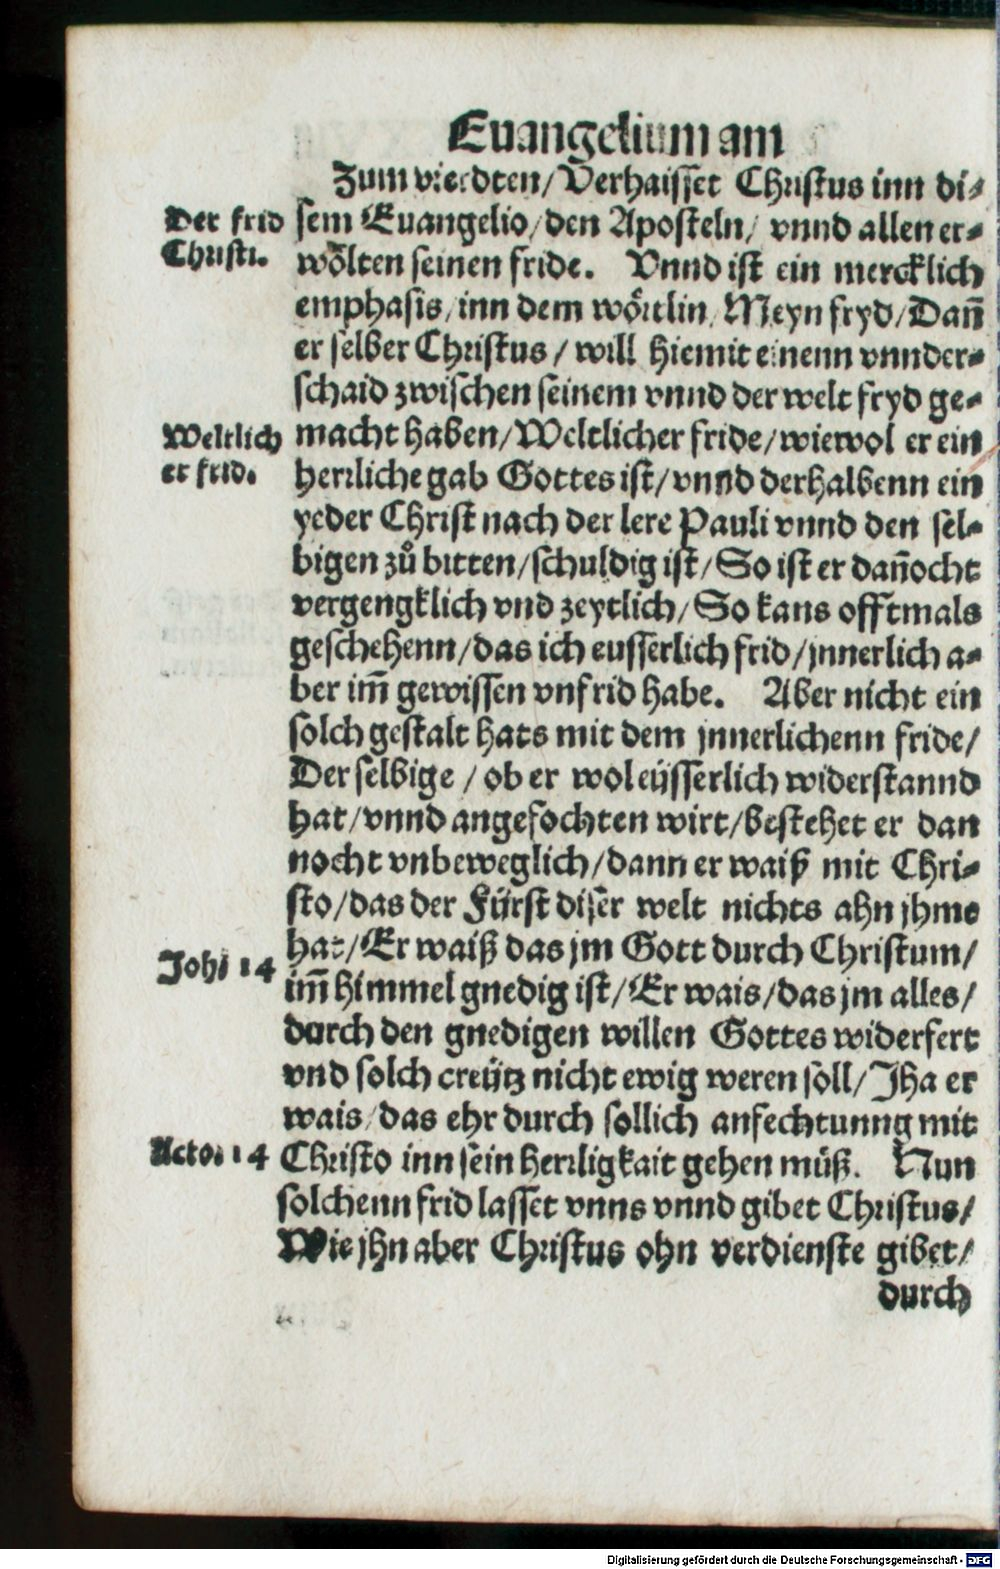 Euangelium am
Zum vierdten/ Verhaisset Christus inn di⸗
Der frid
Christi.
sem Euangelio/ den Aposteln/ vnnd allen er⸗
wo̊lten seinen fride. Vnnd ist ein mercklich
emphasis/ inn dem wo̊rtlin/ Meyn fryd/ Dañ
er selber Christus/ will hiemit einenn vnnder⸗
schaid zwischen seinem vnnd der welt fryd ge⸗
Weltlich
er frid.
macht haben/ Weltlicher fride/ wiewol er ein
herrliche gab Gottes ist/ vnnd derhalbenn ein
yeder Christ nach der lere Pauli vnnd den sel⸗
bigen zů bitten/ schuldig ist/ So ist er dañocht
vergengklich vnd zeytlich/ So kans offtmals
geschehenn/ das ich eusserlich frid/ jnnerlich a⸗
ber im̃ gewissen vnfrid habe. Aber nicht ein
solch gestalt hats mit dem jnnerlichenn fride/
Der selbige / ob er wol eüsserlich widerstannd
hat/ vnnd angefochten wirt/ bestehet er dan
nocht vnbeweglich/ dann er waiß mit Chri⸗
sto/ das der Fürst diser welt nichts ahn jhme
Joh. 14
hat/ Er waiß das jm Gott durch Christum/
im̃ himmel gnedig ist/ Er wais/ das jm alles/
durch den gnedigen willen Gottes widerfert
vnd solch creütz nicht ewig weren soll/ Jha er
wais/ das ehr durch sollich anfechtunng mit
Acto. 14
Christo inn sein herrligkait gehen müß. Nun
solchenn frid lasset vnns vnnd gibet Christus/
Wie jhn aber Christus ohn verdienste gibet/
durch
Digitalisierung gefördert durch die Deutsche Forschungsgemeinschaft - DFG